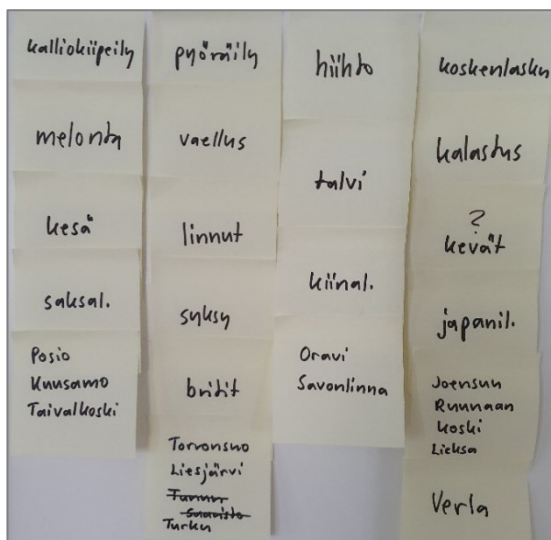 kalliokiipeily
melonta
kesä
saksal.
Posio
Kuusamo
Taivalkoski
pyöräily
vaellus
linnut
syksy
britit
Torronsuo
Liesjärvi
Turku
hiihto
talvi
kiinal.
Oravi
Savonlinna
koskenlasku
kalastus
?
kevät
japanil.
Joensuu
Ruunaan
koski
Lieksa
Verla